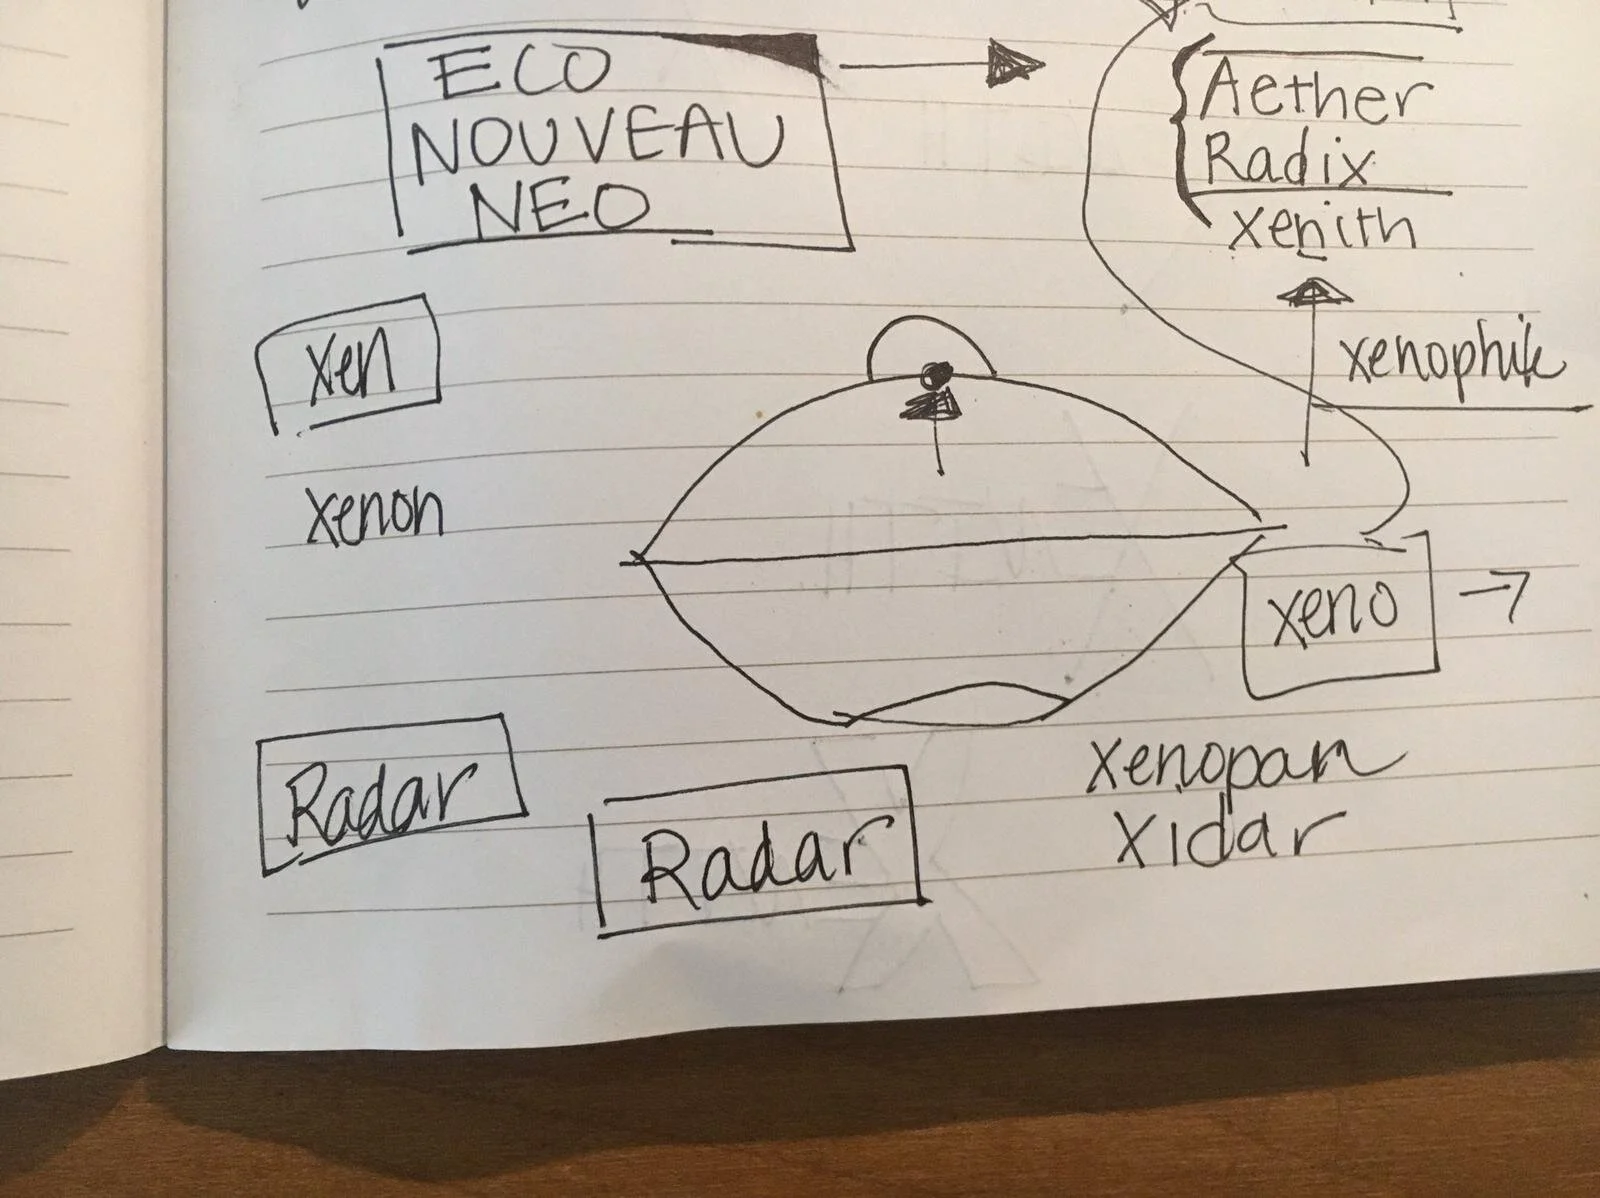 ECO
NOUVEAU
NEO
Aether
Radix
Xenith
xen
xenophik
xenon
xeno
Radar
Radar
Xenopan
Xidar